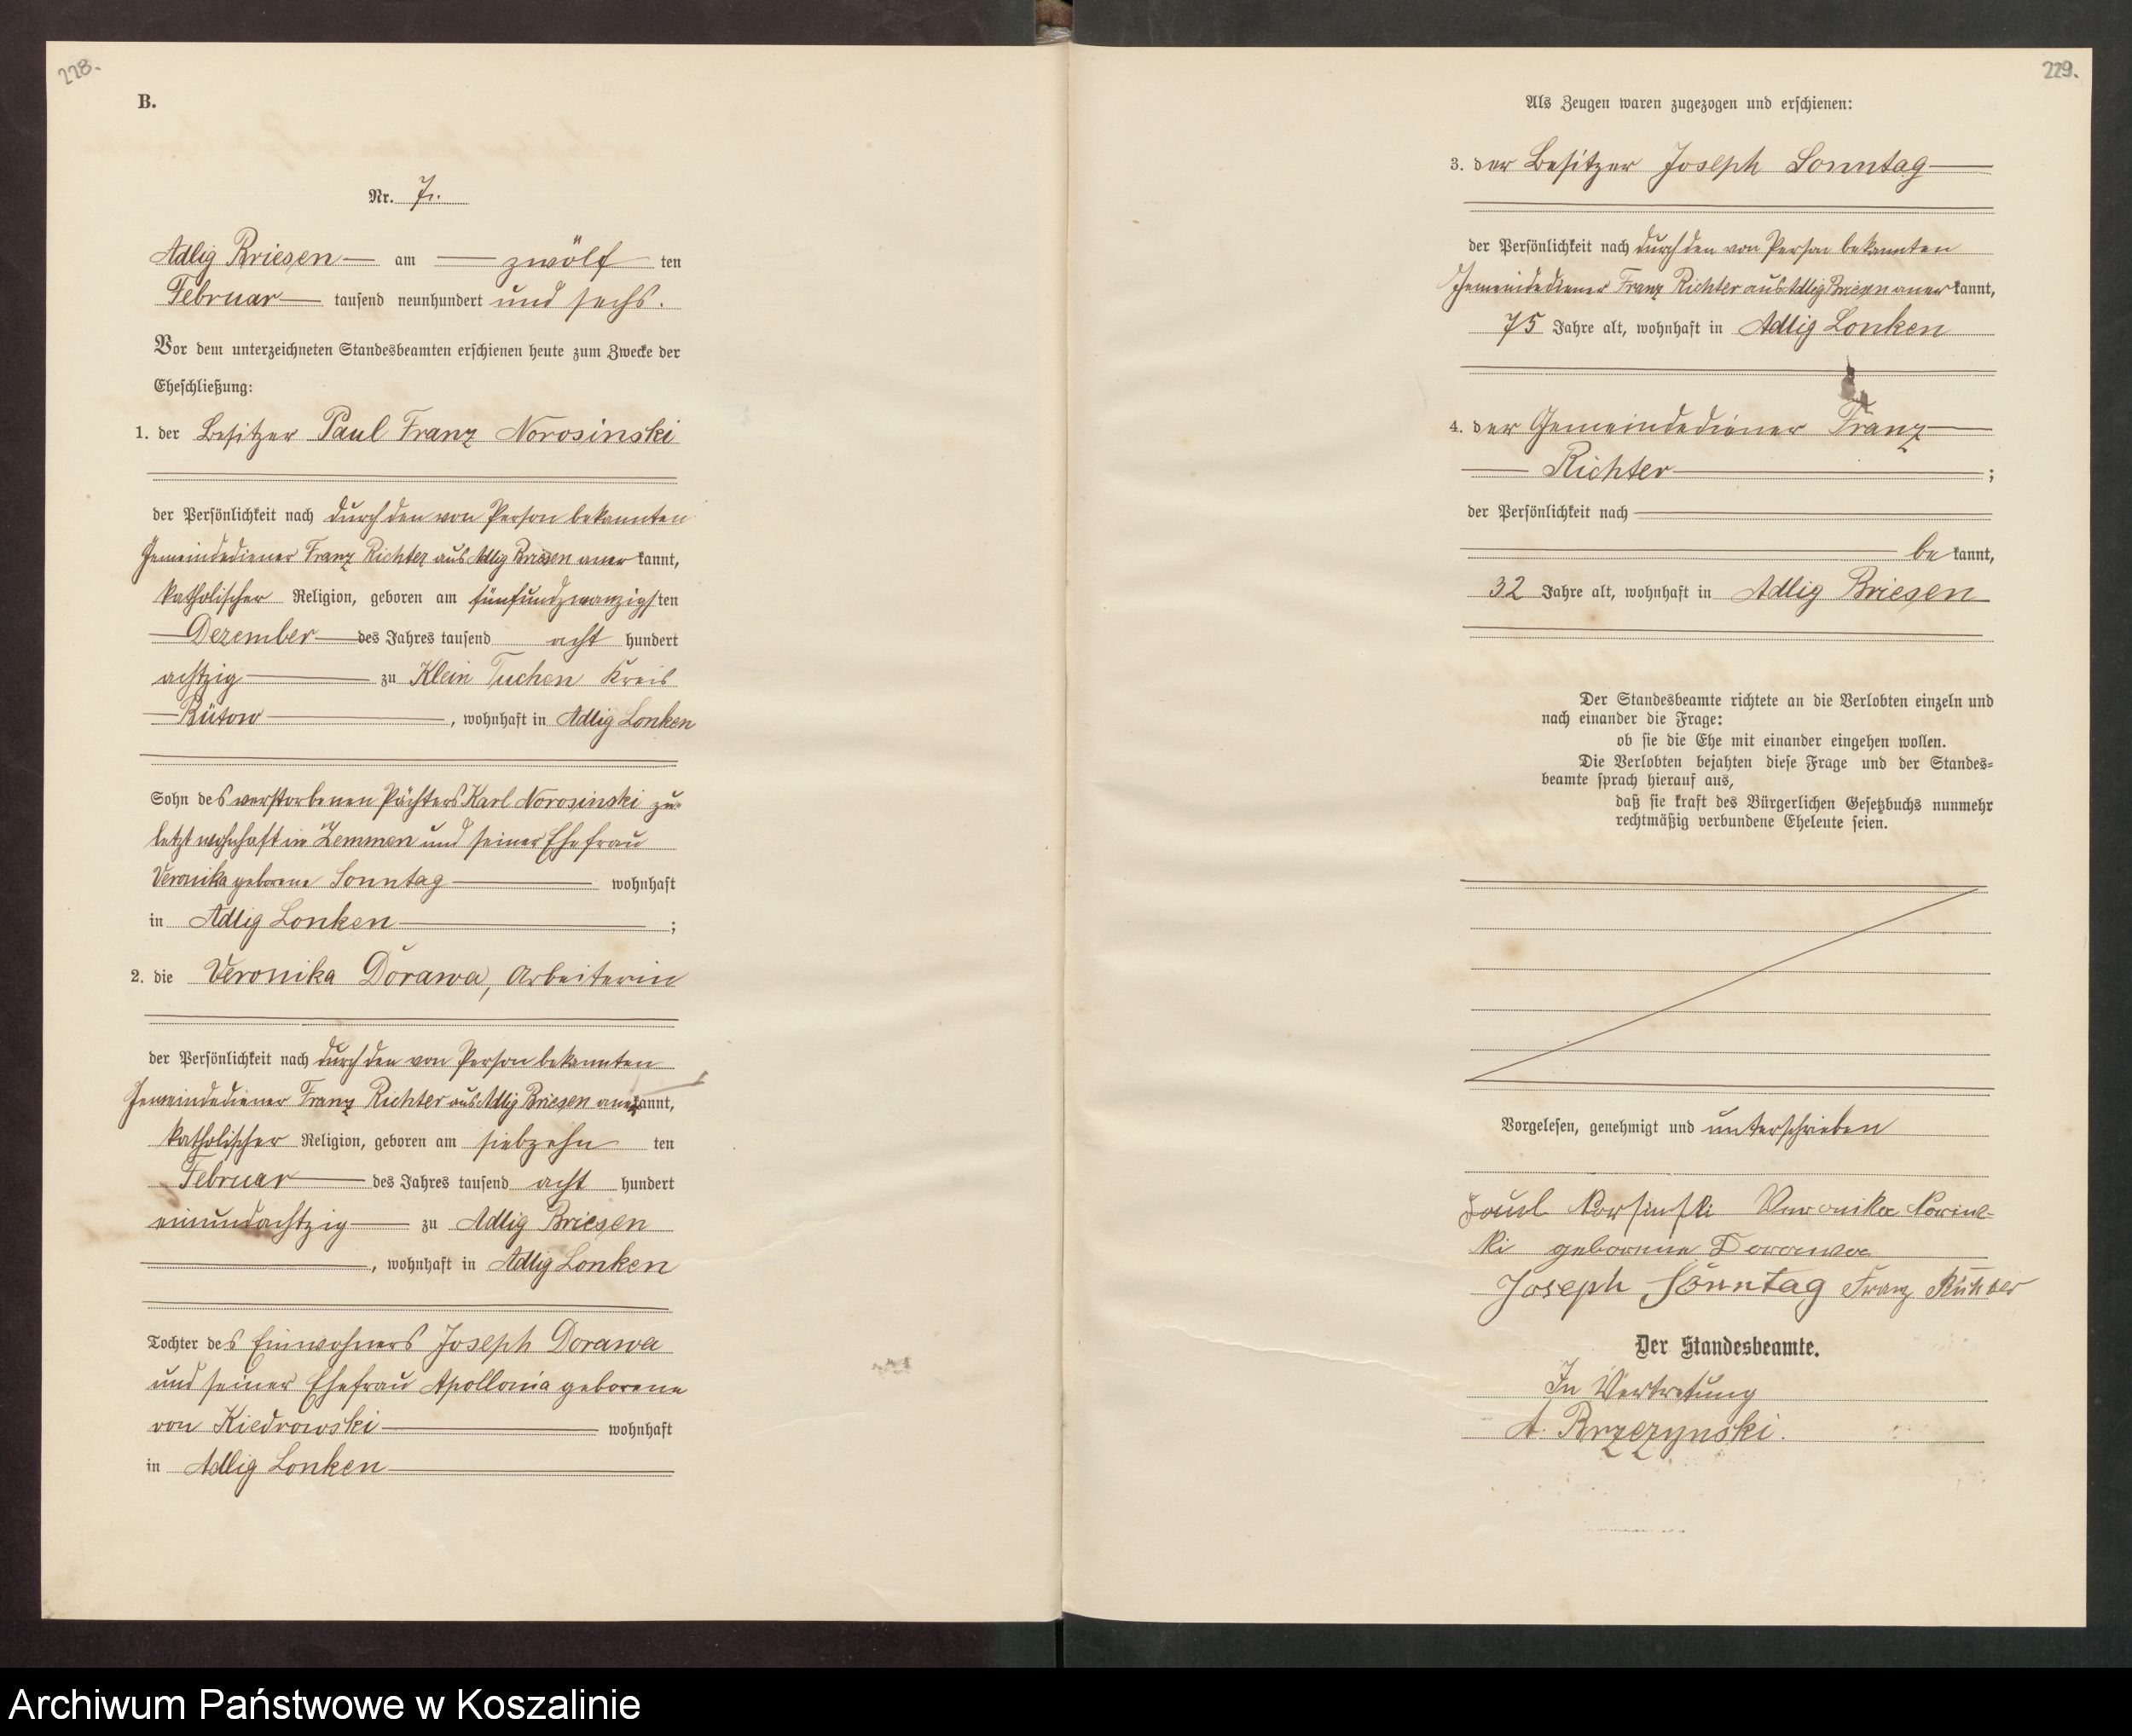 228.
B.
Nr. 7.
Adlig Briesen am zwölf ten
Februar tausend neunhundert und sechs.
Vor dem unterzeichneten Standesbeamten erschienen heute zum Zwecke der
Eheschließung:
1. der Besitzer Paul Franz Norosinski
der Persönlichkeit nach durch den von Person bekannten
Gemeindediener Franz Richter aus Adlig Briesen aner kannt,
katholischer Religion, geboren am fünfundzwanzigsten
Dezember des Jahres tausend acht hundert
achtzig zu Klein Tuchen Kreis
Bütow, wohnhaft in Adlig Lonken
Sohn des verstorbenen Pächters Karl Norosinski zu-
letzt wohnhaft in Zemmen und seiner Ehefrau
Veronika geborene Sonntag wohnhaft
in Adlig Lonken ;
2. die Veronika Dorawa, Arbeiterin
der Persönlichkeit nach durch den von Person bekannten
Gemeindediener Franz Richter aus Adlig Briesen anerkannt,
katholischer Religion, geboren am siebzehn ten
Februar des Jahres tausend acht hundert
einundachtzig zu Adlig Briesen
, wohnhaft in Adlig Lonken
Tochter des Einwohners Joseph Dorawa
und seiner Ehefrau Apollonia geborene
von Kiedrowski wohnhaft
in Adlig Lonken
229.
Als Zeugen waren zugezogen und erschienen:
3. der Besitzer Joseph Sonntag
der Persönlichkeit nach durch den von Person bekannten
Gemeindediener Franz Richter aus Adlig Briesen aner kannt,
75 Jahre alt, wohnhaft in Adlig Lonken
4. der Gemeindediener Franz
Richter ;
der Persönlichkeit nach
be kannt,
32 Jahre alt, wohnhaft in Adlig Briesen
Der Standesbeamte richtete an die Verlobten einzeln und
nach einander die Frage:
ob sie die Ehe mit einander eingehen wollen.
Die Verlobten bejahten diese Frage und der Standes-
beamte sprach hierauf aus,
daß sie kraft des Bürgerlichen Gesetzbuchs nunmehr
rechtmäßig verbundene Eheleute seien.
Vorgelesen, genehmigt und unterschrieben
Paul Norsinski Veronika Norins-
ki geborene Dorawa
Joseph Sonntag Franz Richter
Der Standesbeamte.
In Vertretung
A. Brzezynski.
Archiwum Państwowe w Koszalinie